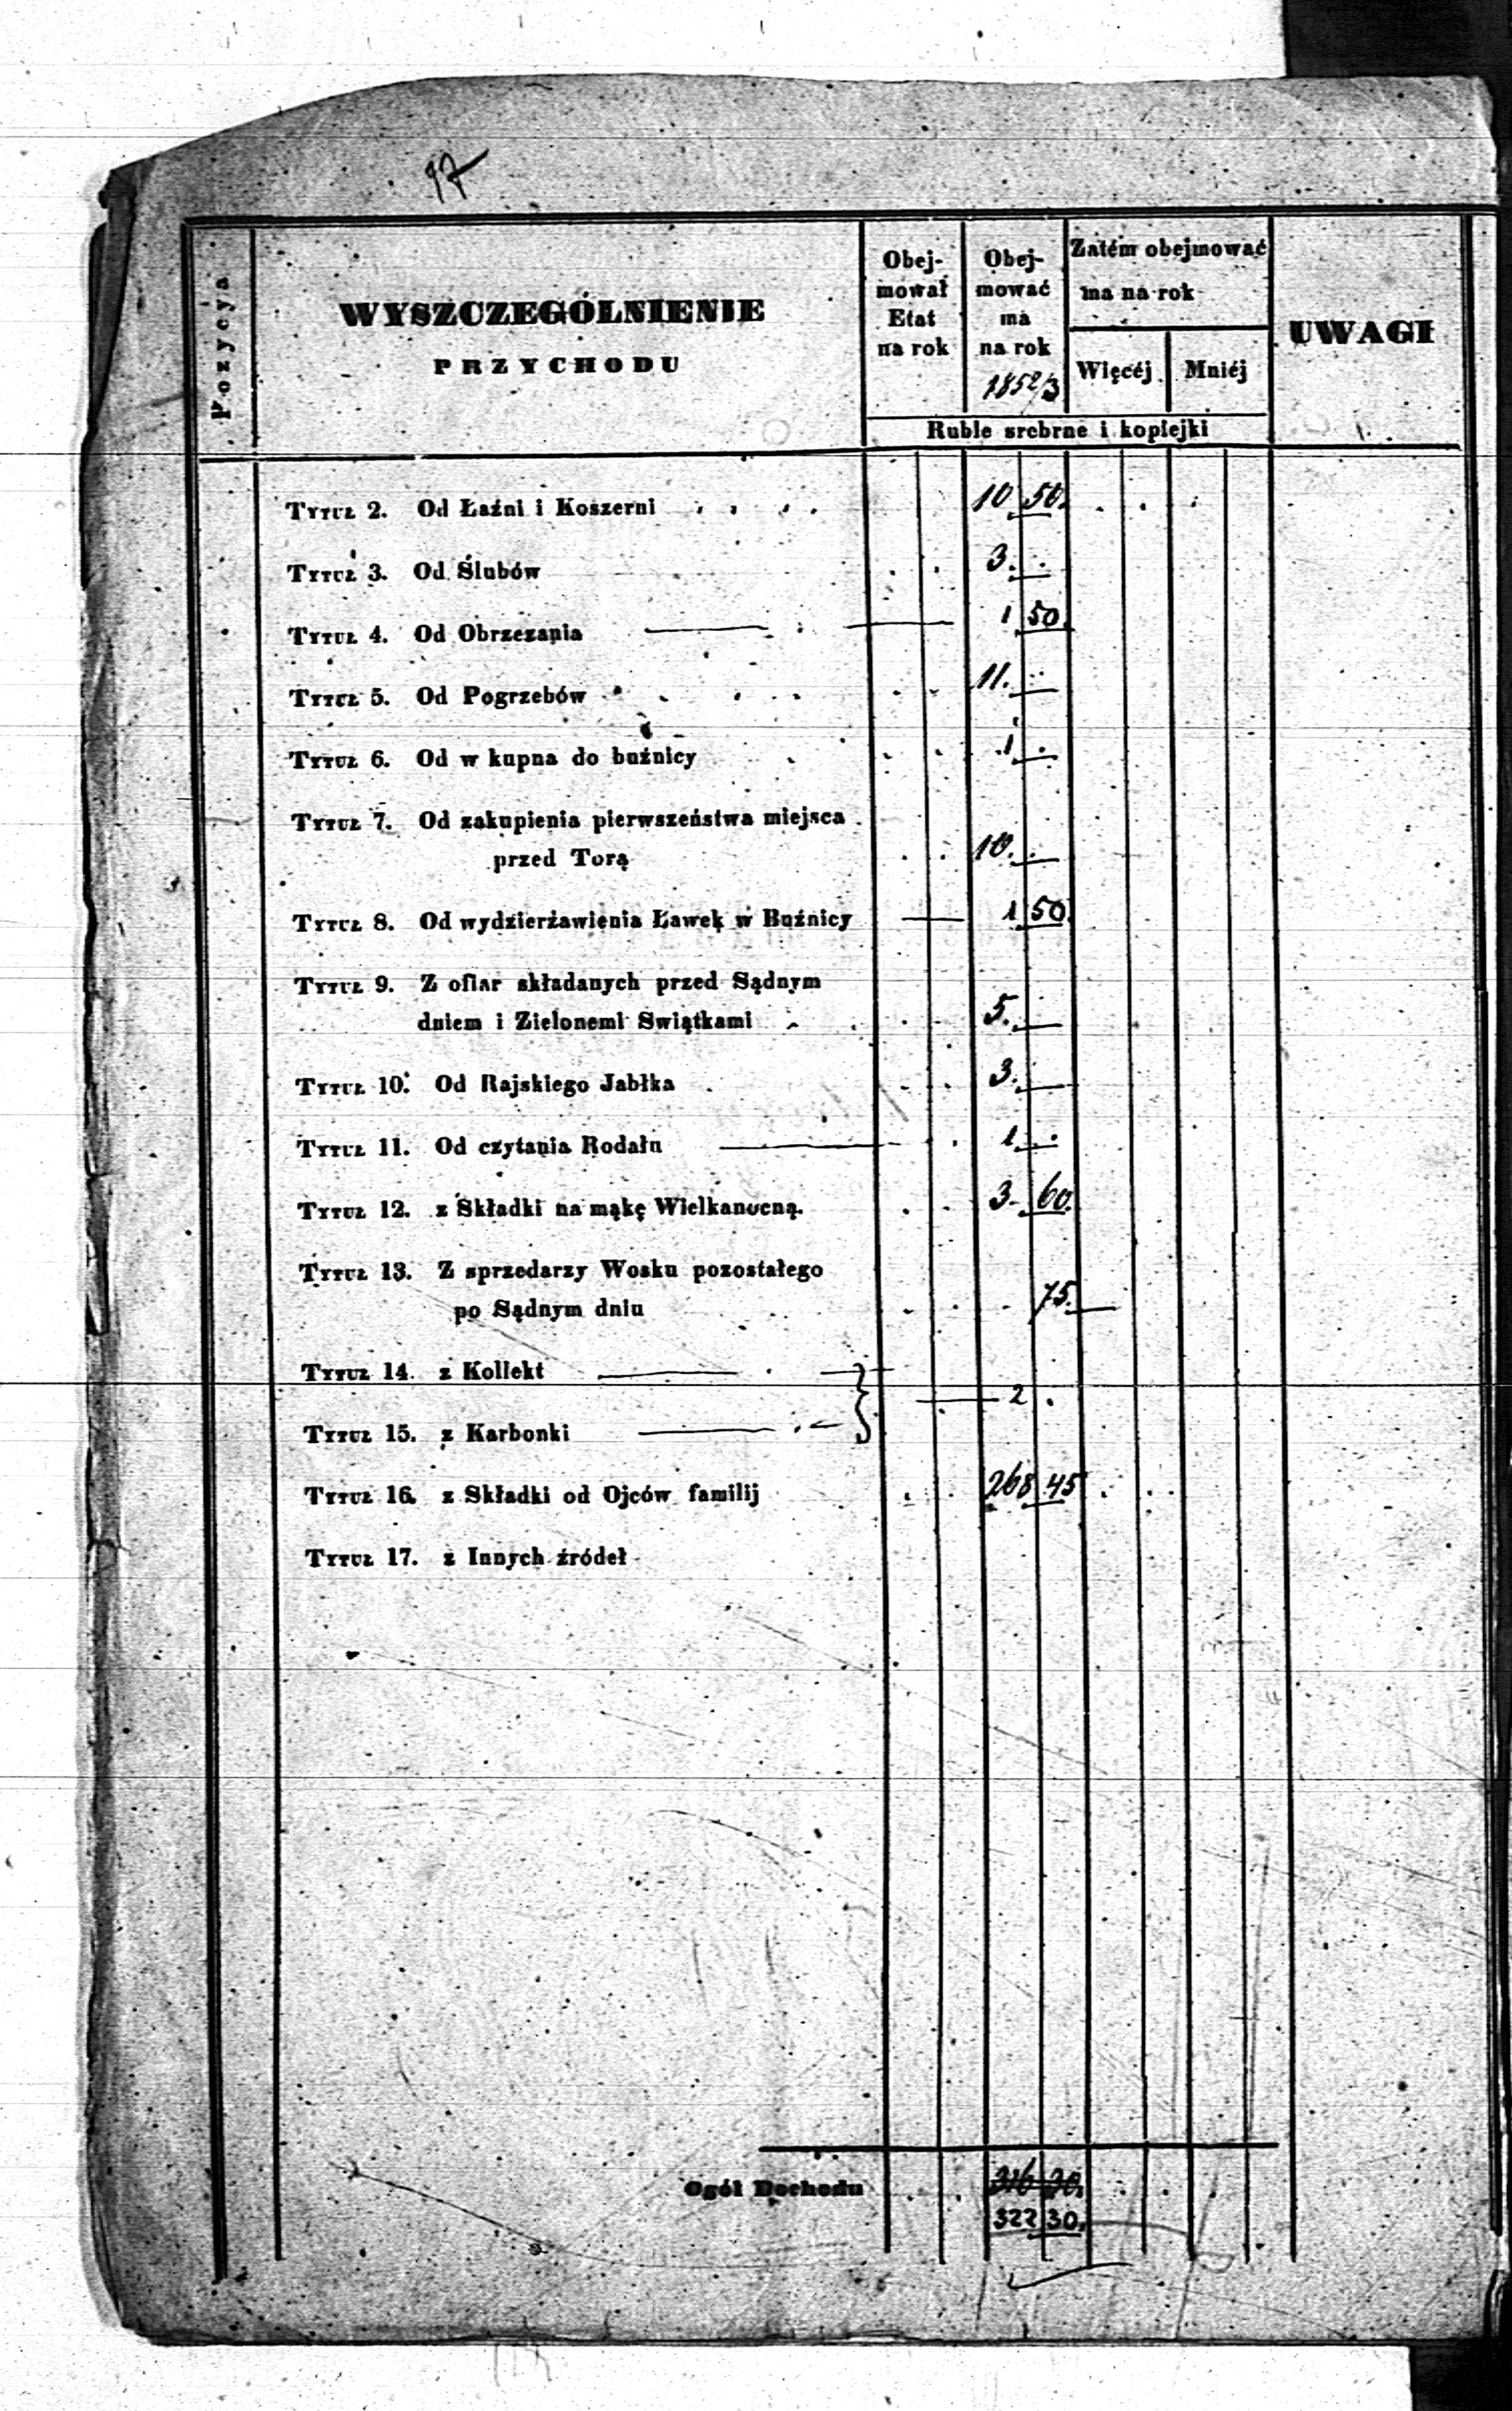 17
Pozycya
WYSZCZEGÓLNIENIE
PRZYCHODU
Obej-
mował
Etat
na rok
Obej-
mować
ma
na rok
1852/3
Zatém obejmować
ma na rok
Więcéj
Mniéj
UWAGI
Ruble srebrne i kopiejki
Tytuł 2. Od Łaźni i Koszerni 10 50.
Tytuł 3. Od Ślubów 3.
Tytuł 4. Od Obrzezania 1 50.
Tytuł 5. Od Pogrzebów 11.
Tytuł 6. Od w kupna do buźnicy 1
Tytuł 7. Od zakupienia pierwszeństwa miejsca
przed Torą 10.
Tytuł 8. Od wydzierżawienia Ławek w Buźnicy 1 50.
Tytuł 9. Z ofiar składanych przed Sądnym
dniem i Zielonemi Swiątkami 5.
Tytuł 10. Od Rajskiego Jabłka 3.
Tytuł 11. Od czytania Rodału 1
Tytuł 12. z Składki na mąkę Wielkanocną. 3. 60.
Tytuł 13. Z sprzedarzy Wosku pozostałego
po Sądnym dniu 75.
Tytuł 14. z Kollekt
2
Tytuł 15. z Karbonki
Tytuł 16. z Składki od Ojców familij 268 45
Tytuł 17. z Innych źródeł
Ogół Dochodu 316 30.
322 30.